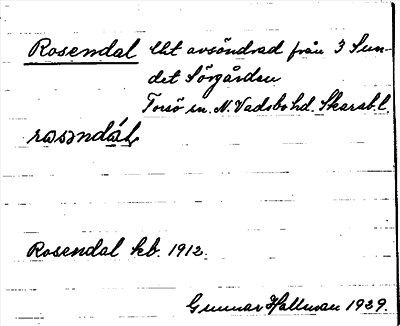 Rosendal lht avsöndrad från 3 Sun-
det Sörgården
Torsö sn. N. Vadsbo hd. Skarab.l.
Rosendal kb. 1912.
Gunnar Hallman 1929.